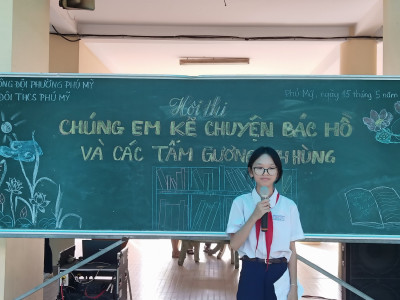 ĐỒNG ĐỘI PHƯỜNG PHÚ MỸ
ĐỘI THCS PHÚ MỸ
Phú Mỹ, ngày 15 tháng 5 năm
Hội thi
CHÚNG EM KỂ CHUYỆN BÁC HỒ
VÀ CÁC TẤM GƯƠNG HÙNG